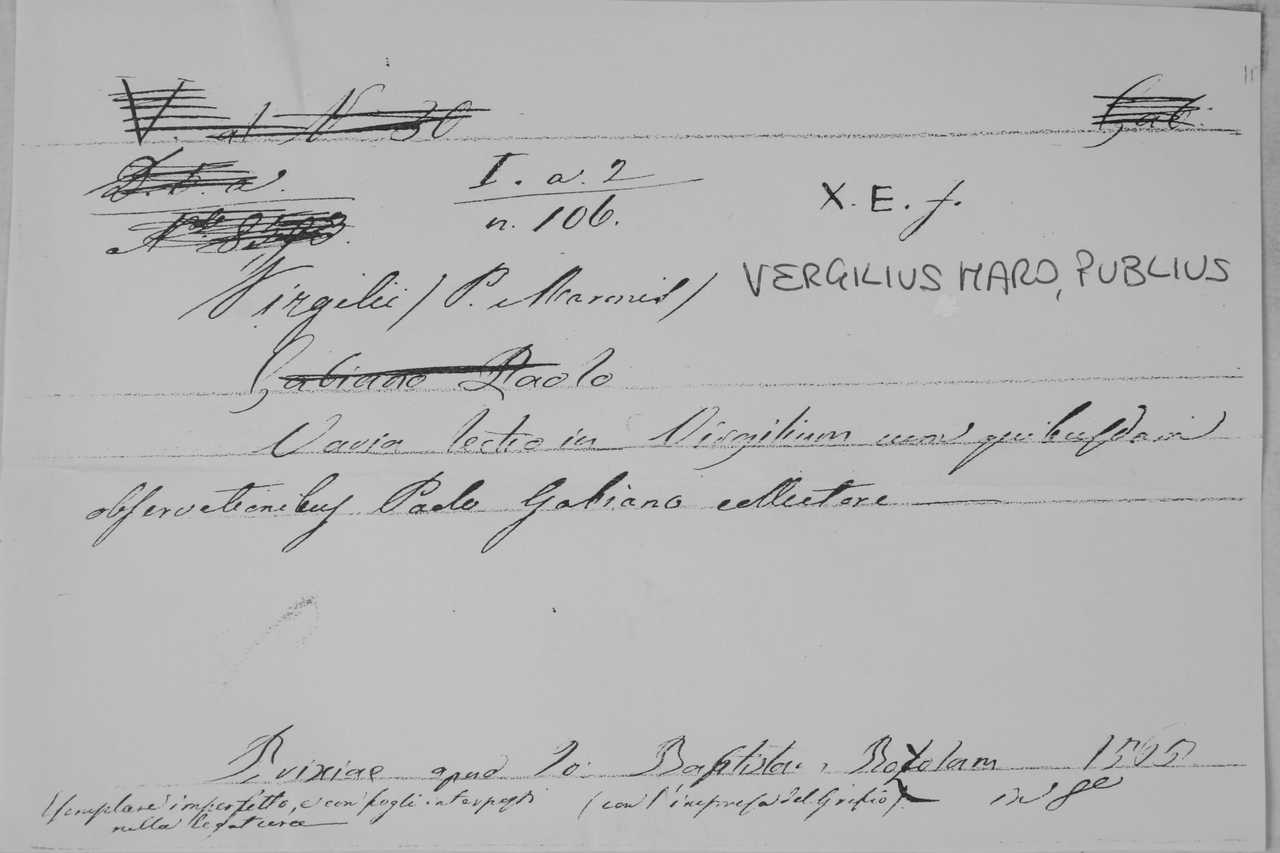 V. al N 30
Gab.
D. b. a.
I. a. 2
X. E. f.
n. 106.
Virgilii (P. Maronis)
VERGILIUS MARO, PUBLIUS
Gabiano Paolo
Varia lectio in Virgilium cum quibusdam
observationibus Paolo Gabiano collectore
Brixiae apud Io: Baptistam Bozolam 1565
Esemplare imperfetto, e con fogli interposti (con l'impresa del Grifio) in 8º
nella legatura